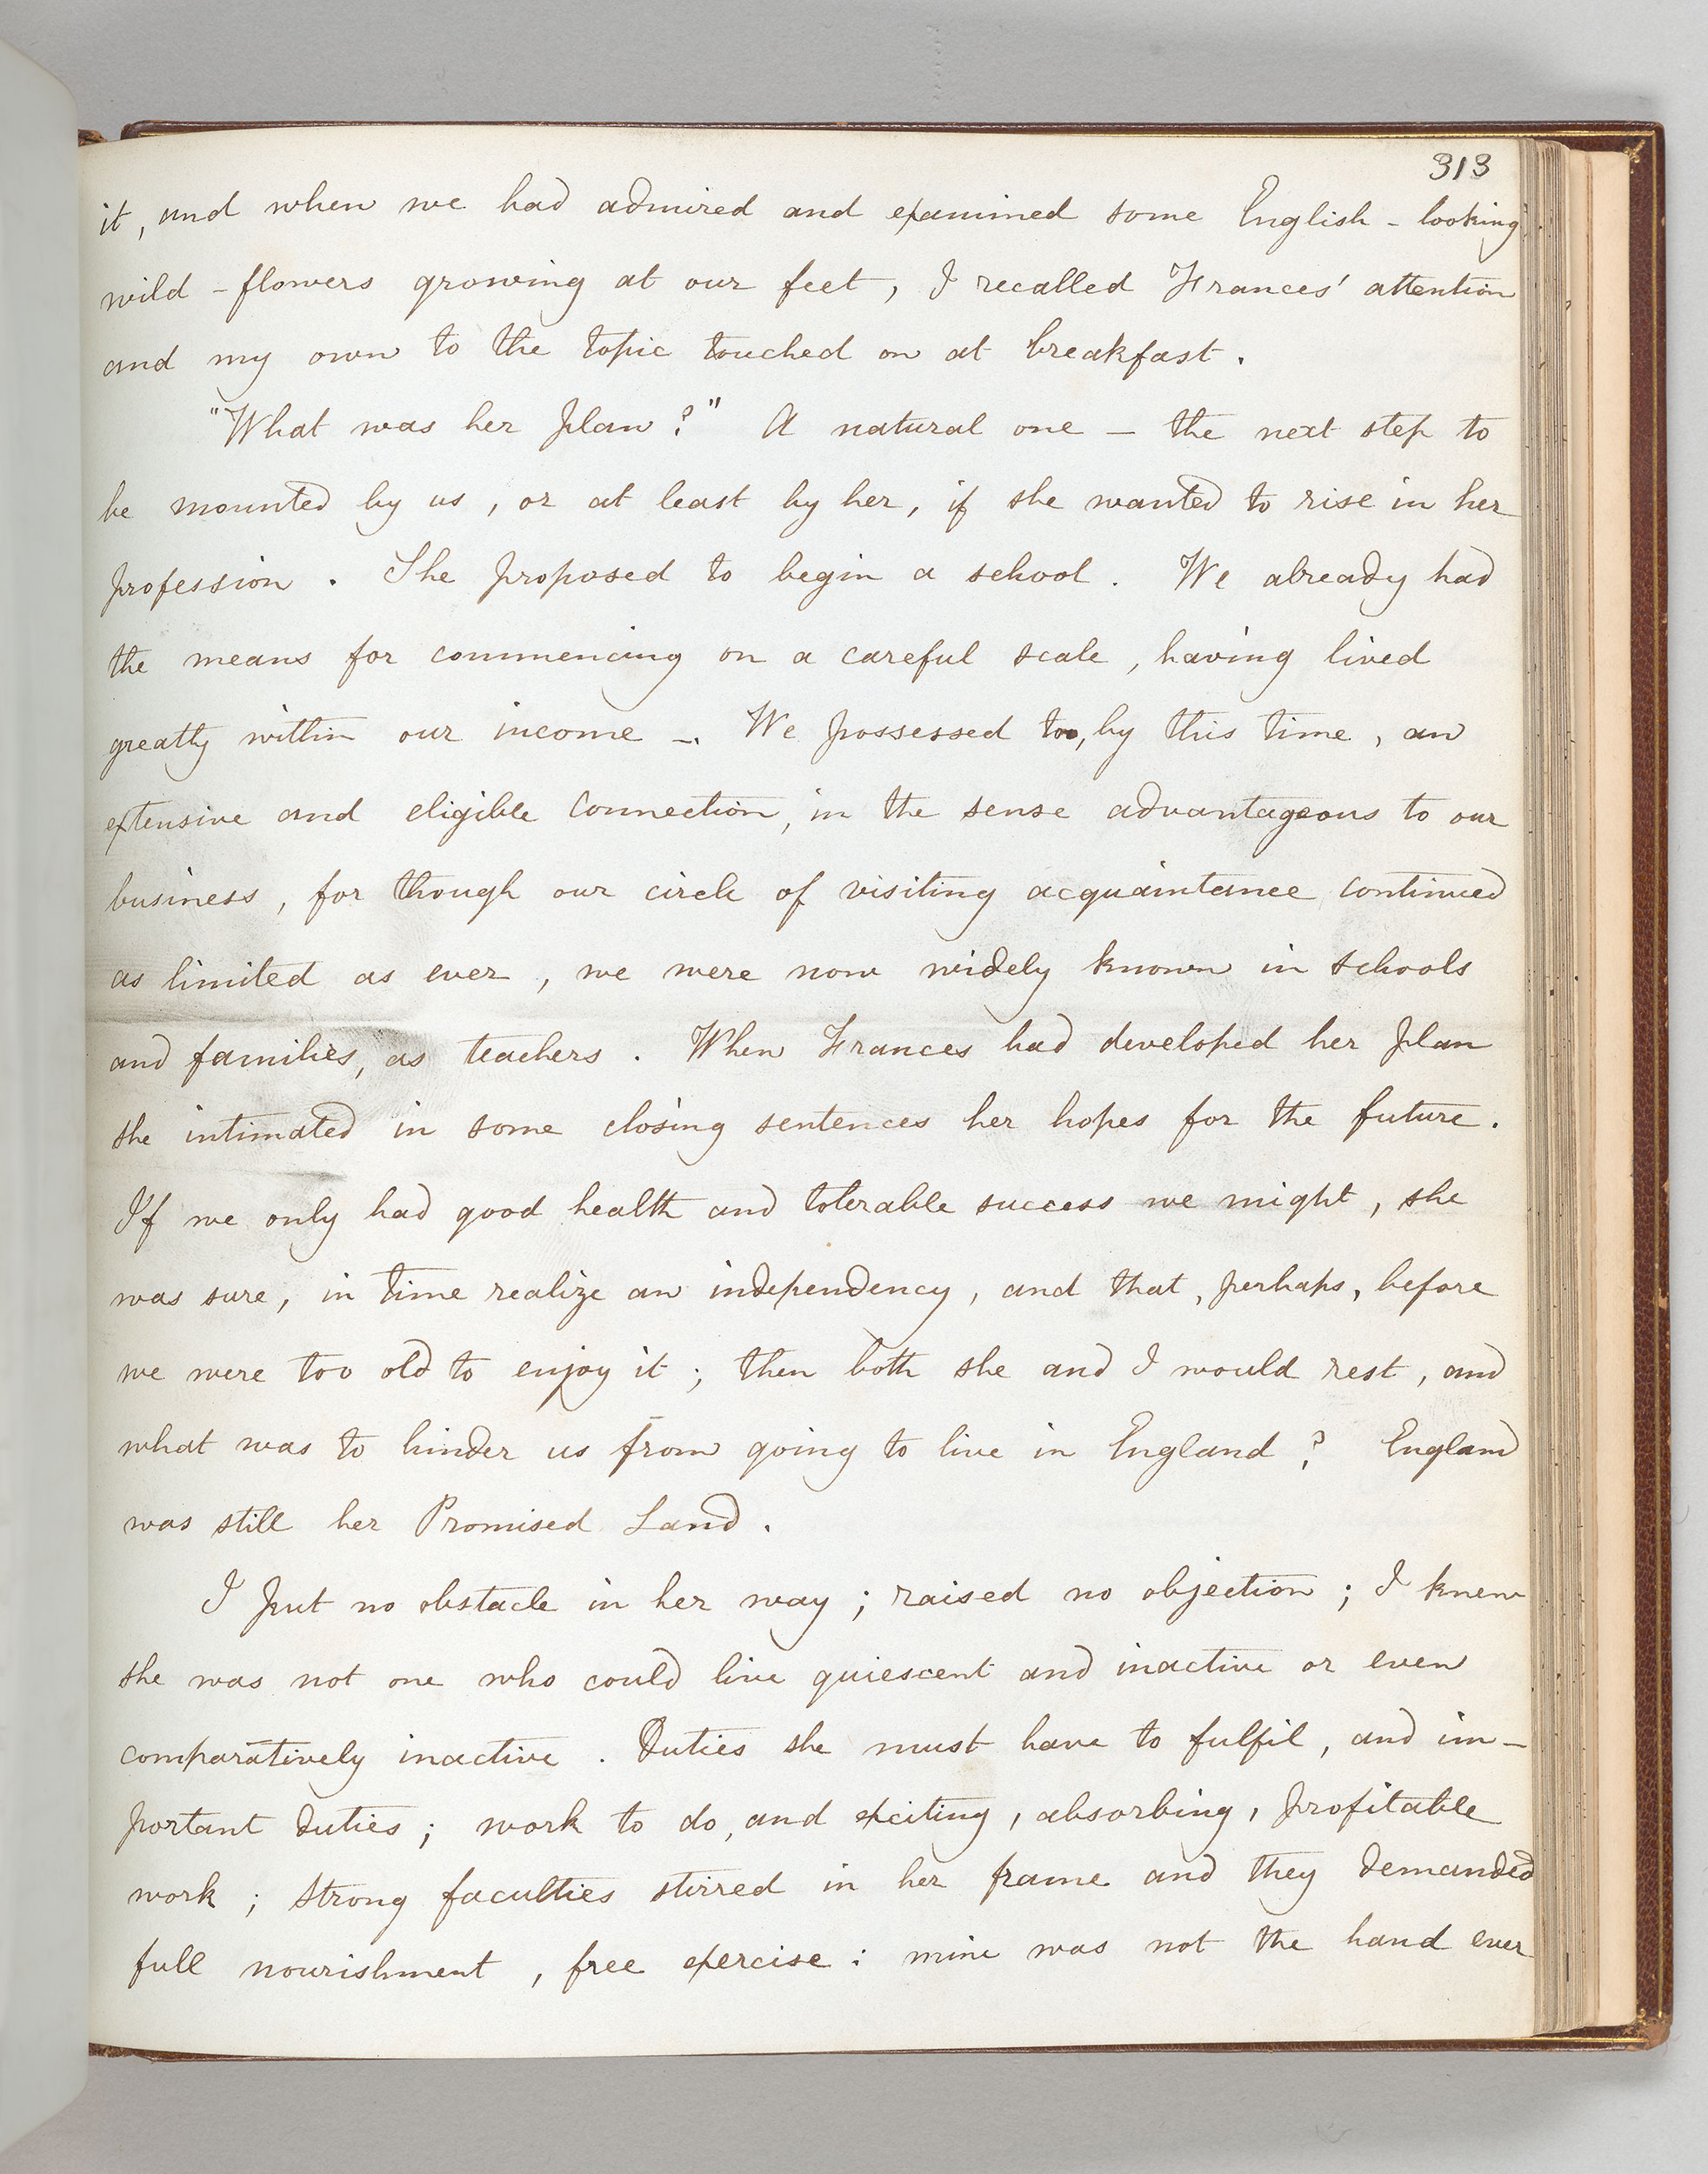 313
it, and when we had admired and examined some English-looking
wild-flowers growing at our feet, I recalled Frances' attention
and my own to the topic touched on at breakfast.
"What was her plan?" A natural one — the next step to
be mounted by us, or at least by her, if she wanted to rise in her
profession. She proposed to begin a school. We already had
the means for commencing on a careful scale, having lived
greatly within our income —. We possessed too, by this time, an
extensive and eligible connection, in the sense advantageous to our
business, for though our circle of visiting acquaintance continued
as limited as ever, we were now widely known in schools
and families, as teachers. When Frances had developed her plan
she intimated in some closing sentences her hopes for the future.
If we only had good health and tolerable success we might, she
was sure, in time realize an independency, and that, perhaps, before
we were too old to enjoy it; then both she and I would rest, and
what was to hinder us from going to live in England? England
was still her Promised Land.
I put no obstacle in her way; raised no objection; I knew
she was not one who could live quiescent and inactive or even
comparatively inactive. Duties she must have to fulfil, and im-
portant duties; work to do, and exciting, absorbing, profitable
work; strong faculties stirred in her frame and they demanded
full nourishment, free exercise: mine was not the hand ever